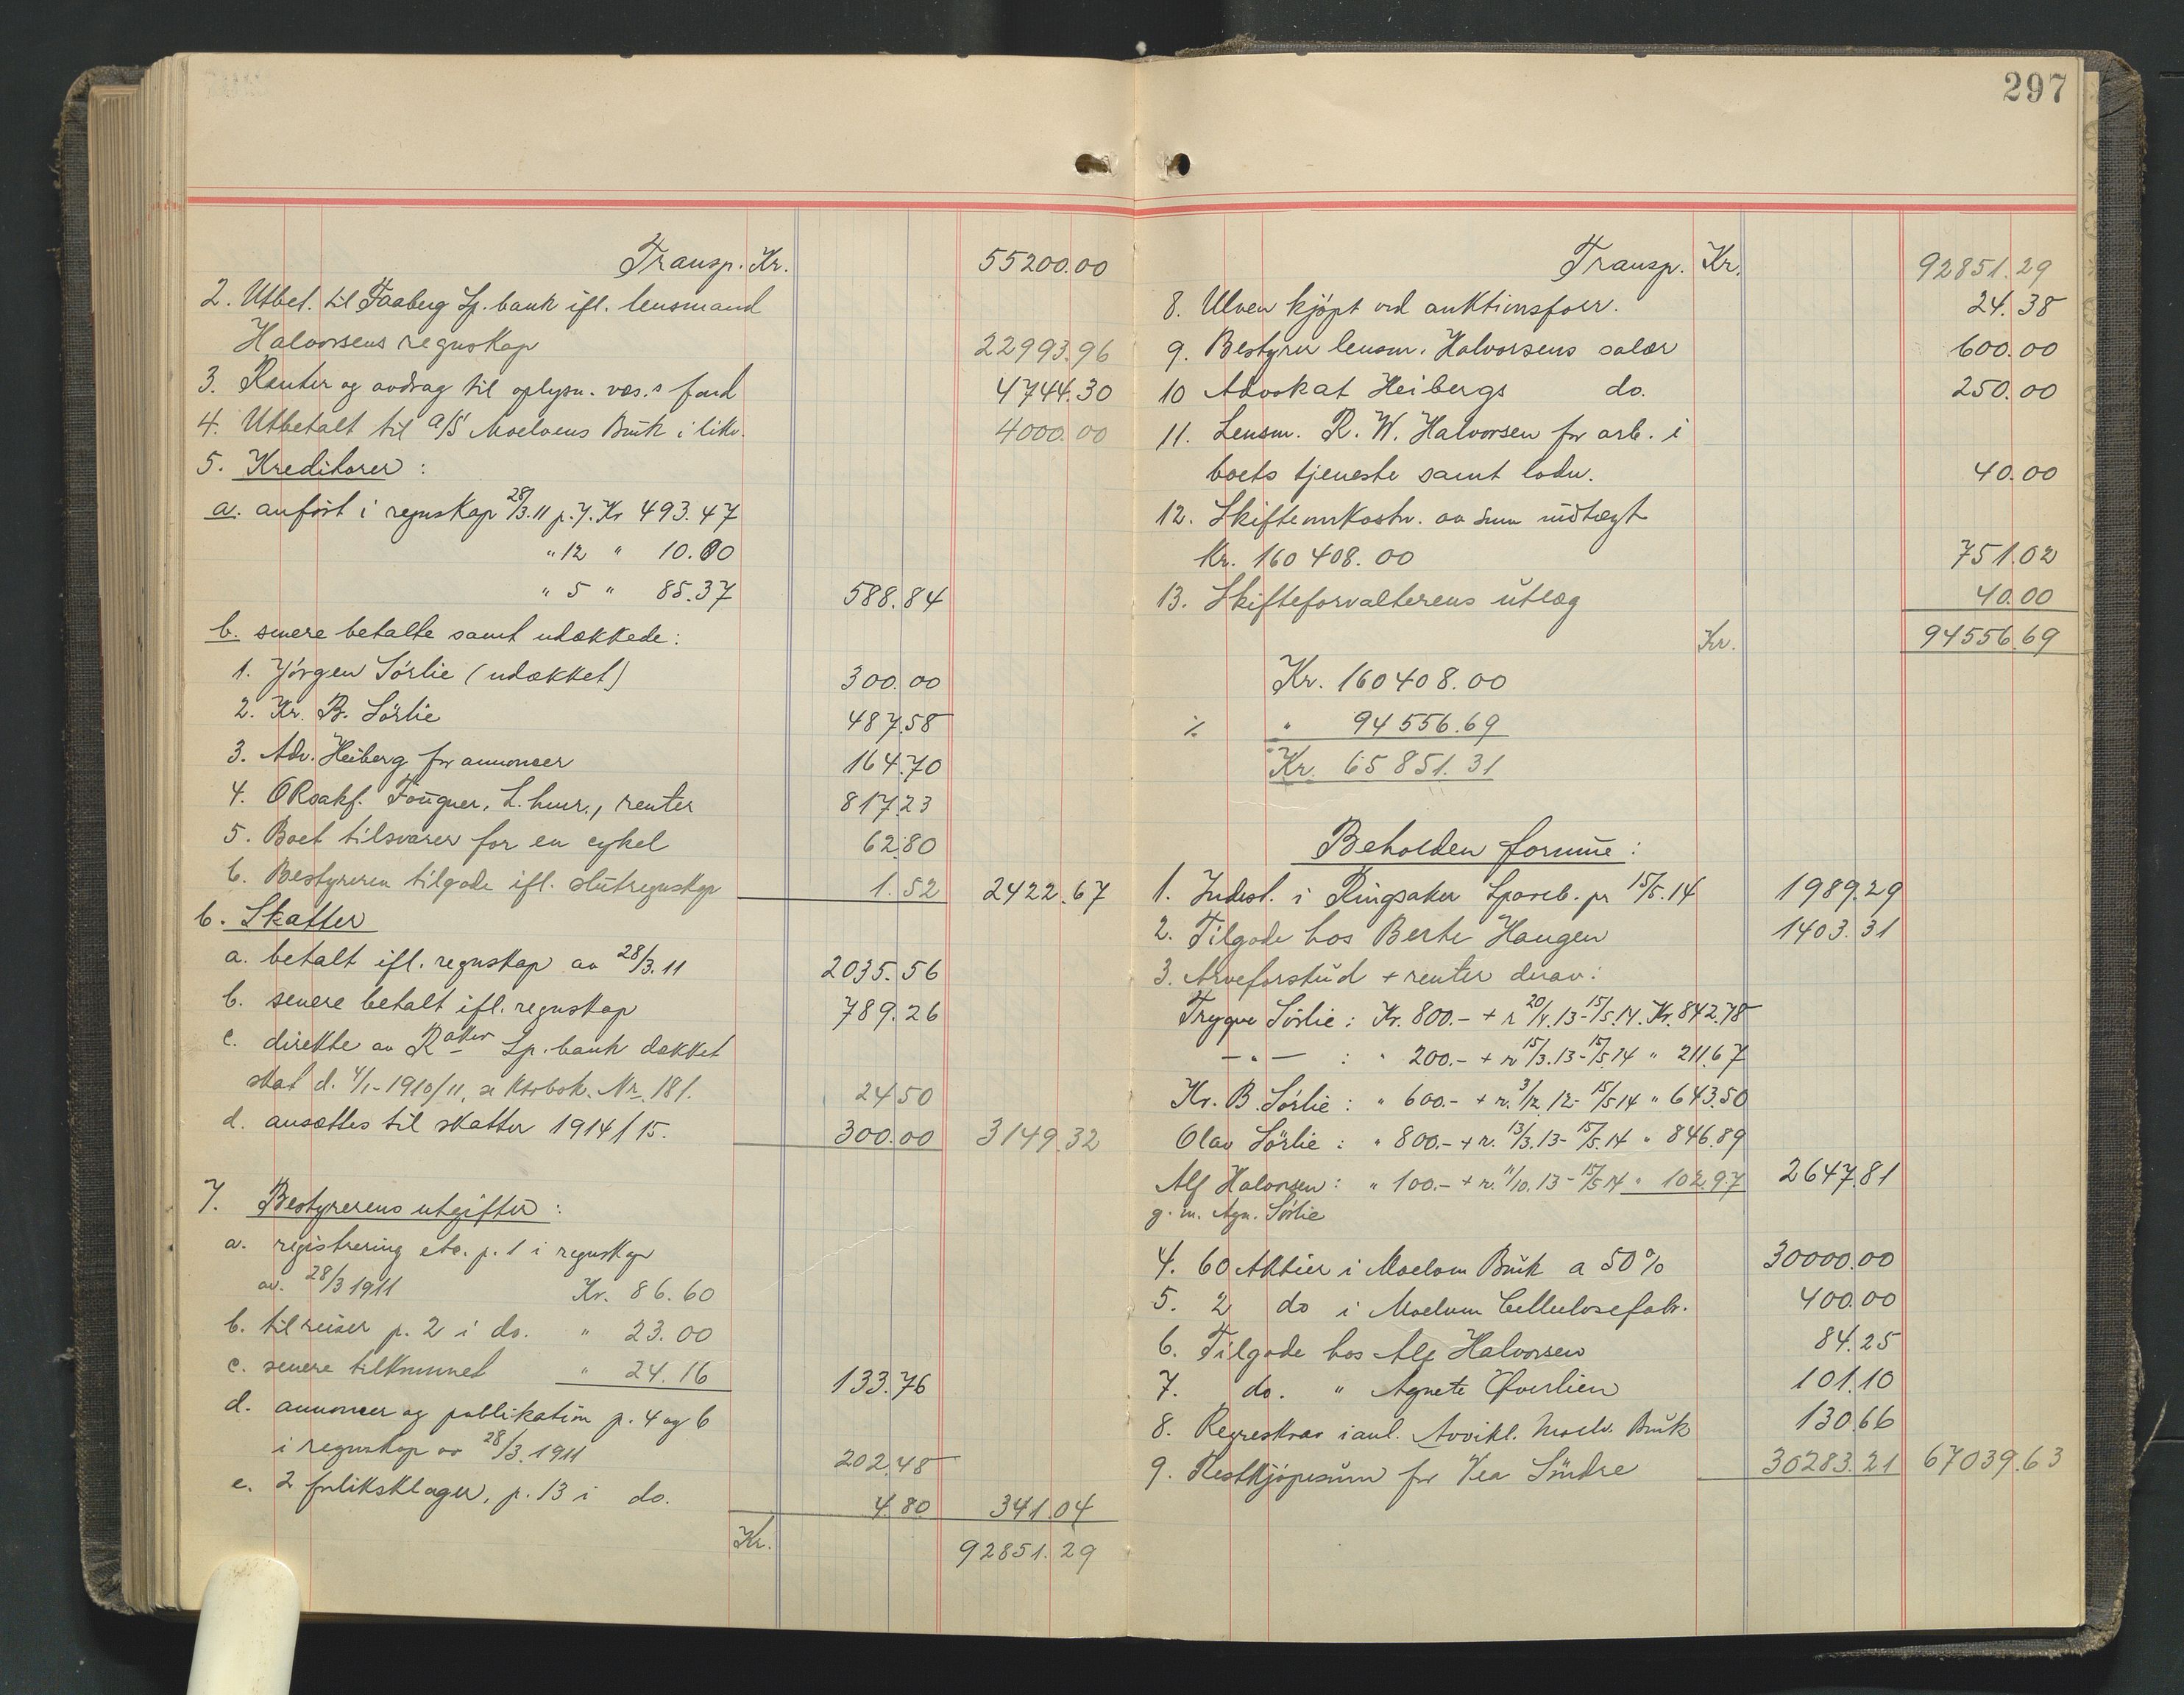 Transp. Kr. 55200.00
2. Utbet. til Faaberg Sp. bank ifl. lensmand
Halvorsens regnskap 22993.96
3. Renter og avdrag til oplysn. væs.s fond 4744.30
4. Utbetalt til a/s Moelvens Bruk i likv. 4000.00
5. Kreditorer:
a. anført i regnskap 28/3.11 p. 7. Kr 493.47
" 12 " 10.00
" 5 " 85.37 588.84
b. senere betalte samt udækkede:
1. Jörgen Sörlie (udækket) 300.00
2. Kr. B. Sörlie 487.58
3. Adv. Heiberg for annonser 164.70
4. ORsakf. Fougner, L.hmr., renter 817.23
5. Boet tilsvarer for en cykel 62.80
6. Bestyreren tilgode ifl. slutregnskap 1.52 2422.67
6. Skatter
a. betalt ifl. regnskap av 28/3.11 2035.56
b. senere betalt ifl. regnskap 789.26
c. direkte av Raker Sp. bank dækket
skat d. 4/1-1910/11, se Nr. 181. 24.50
d. ansættes til skatter 1914/15. 300.00 3149.32
7. Bestyrerens utgifter:
a. registrering etc. p. 1 i regnskap
av. 28/3 1911 Kr. 86.60
b. til reiser p. 2 i do. " 23.00
c. senere tilkommet " 24.16 133.76
d. annonser og publikation p. 4 og 6
i regnskap av 28/3.1911 202.48
e. 2 forliksklager, p. 13 i do. 4.80 341.04
Kr. 92851.29
297
Transp. Kr. 92851.29
8. Ulven kjøpt ved auktionsforr. 24.38
9. Bestyrer lensm. Halvorsens salær 600.00
10 Advokat Heibergs do. 250.00
11. Lensm. R. W. Halvorsen for arb. i
boets tjeneste samt lodn. 40.00
12. Skifteomkostn. av Sum indtægt
Kr. 160 408.00 751.02
13. Skifteforvalterens utlæg 40.00
Kr. 94556.69
Kr. 160408.00
⁒ " 94556.69
Kr. 65851.31
Beholden formue:
1. Indest. i Ringsaker Spareb. pr 15/5.14 1989.29
2. Tilgode hos Berte Haugen 1403.31
3. Arveforskud + renter derav:
Trygve Sörlie: Kr. 800.- + r 20/IV.13-15/5.14. Kr. 842.78
— " — : " 200.- + r 15/3.13-15/5.14 " 211.67
Kr. B. Sörlie: " 600.- + r. 3/12.12-15/5 14 " 643.50
Olav Sörlie: " 800.- + r. 13/3.13-15/5.14 " 846.89
Alf Halvorsen: " 100.- + r. 11/10.13-15/5 14 " 102.97 2647.81
g. m. Agn. Sörlie
4. 60 Aktier i Moelven Bruk a 50% 30000.00
5. 2 do i Moelven Cellulosefabr. 400.00
6. Tilgode hos Alf Halvorsen 84.25
7. do. " Agnete Øverlien 101.10
8. Regreskrav i anl. Avvikl. Moelv. Bruk 130.66
9. Restkjøpesum for Vea Søndre 30283.21 67039.63